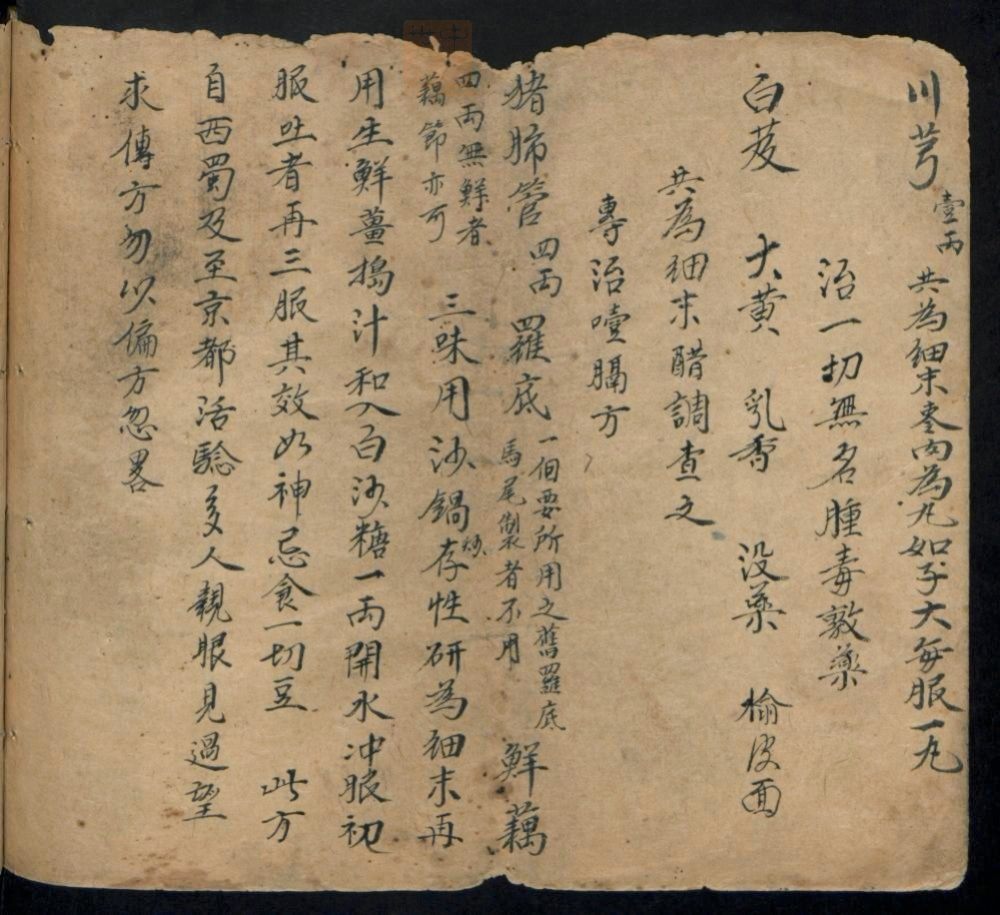 川芎壹両 共為細末蜜為丸如子大每服一丸
治一切無名腫毒敷藥
白芨 大黄 乳香 没藥 榆皮面
共為細末醋調查之
專治噎膈方
猪肺管四両 羅底一個要所用之舊羅底馬尾製者不用 鮮藕
四両無鮮者藕節亦可 三味用沙鍋炒存性研為細末再
用生鮮薑搗汁和入白沙糖一両開水冲服初
服吐者再三服其效如神忌食一切豆 此方
自西蜀及至京都活驗多人親眼見過望
求傳方勿以偏方忽畧